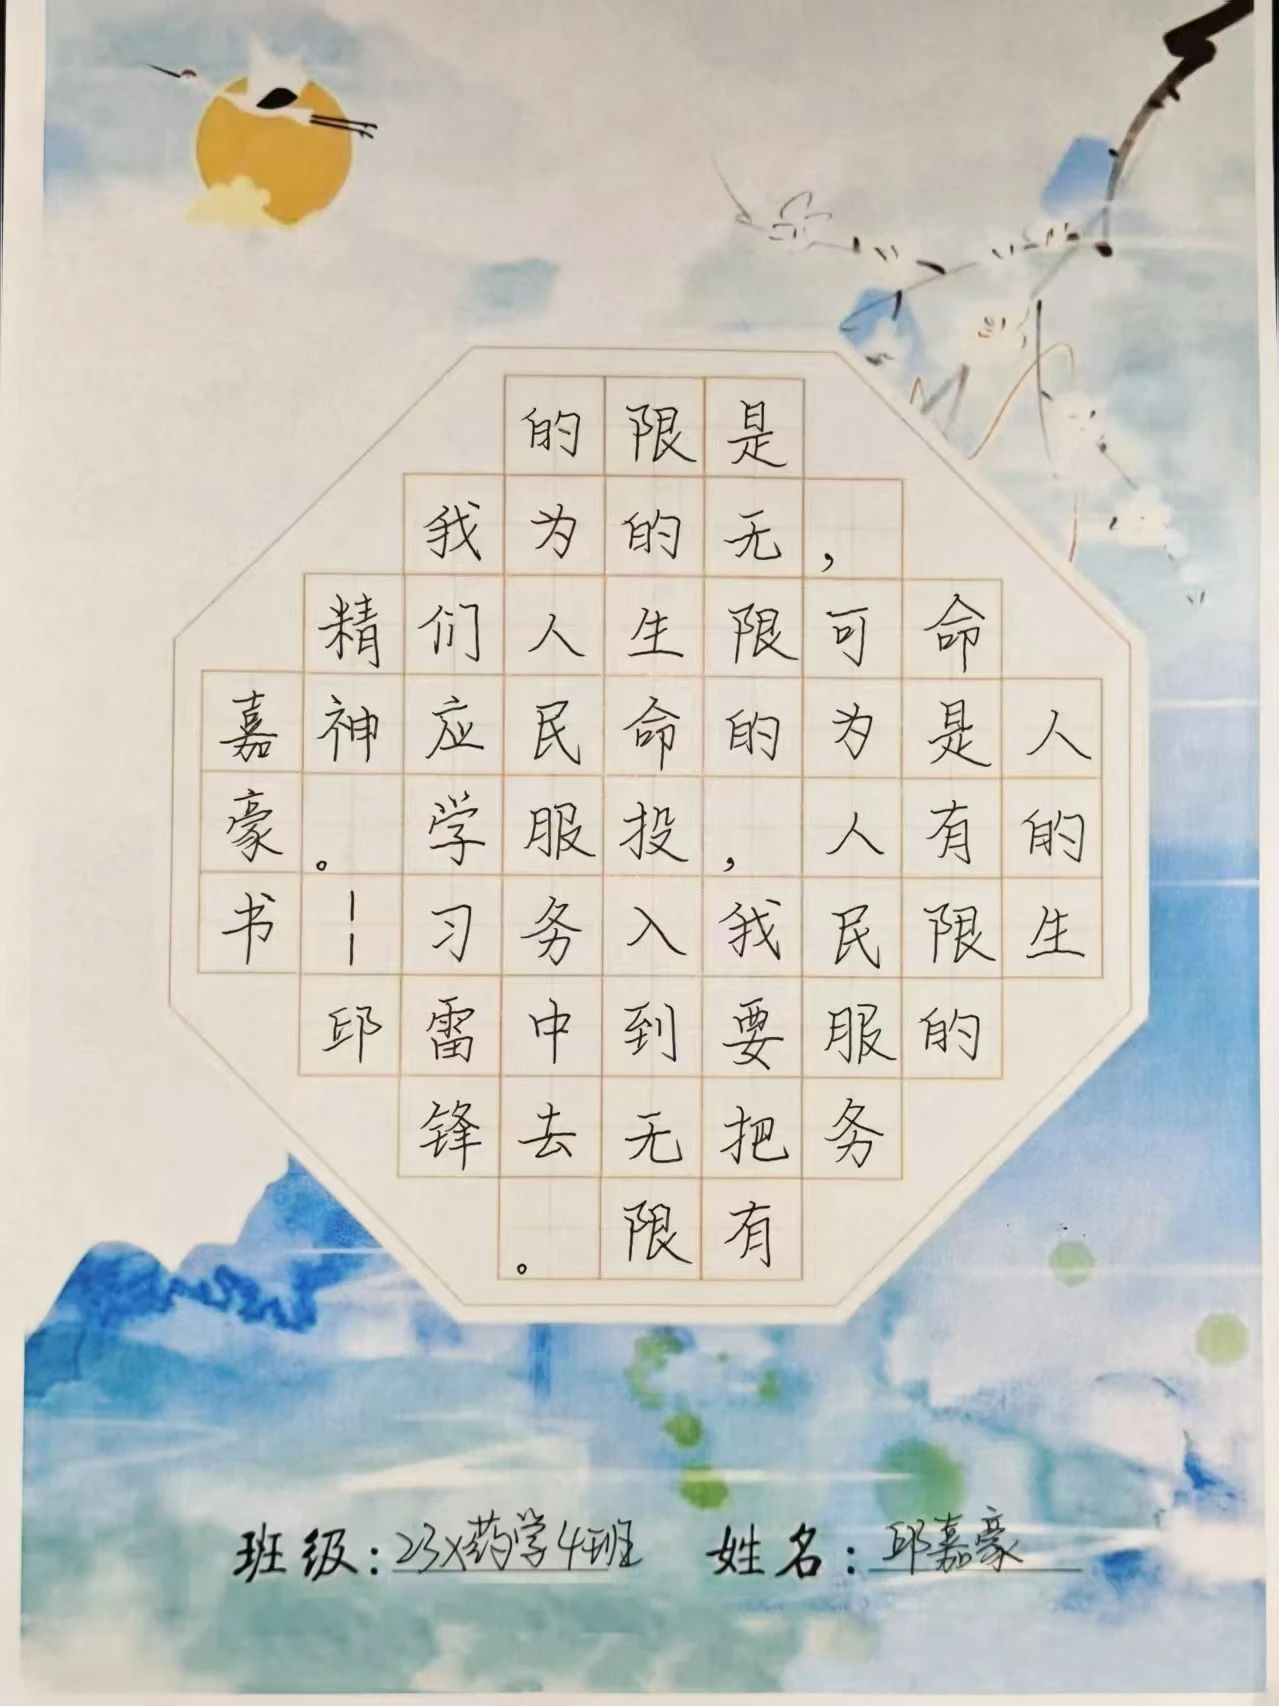 人的生
命是有限的
，可为人民服务
是无限的，我要把有
限的生命投入到无限
的为人民服务中去。
我们应学习雷锋
精神。——邱
嘉豪书
班级：23X药学4班 姓名：邱嘉豪